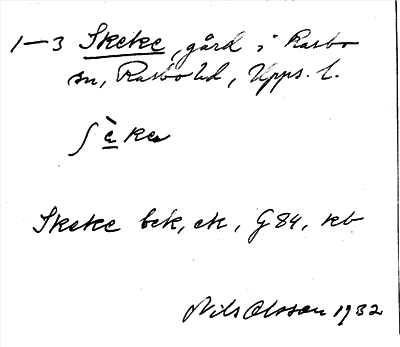 1–3 Skeke, gård i Rasbo
sn, Rasbo hd, Upps. l.
ʃè̠ka
Skeke bek, ek, G 84, kb
Nils Olsson 1932